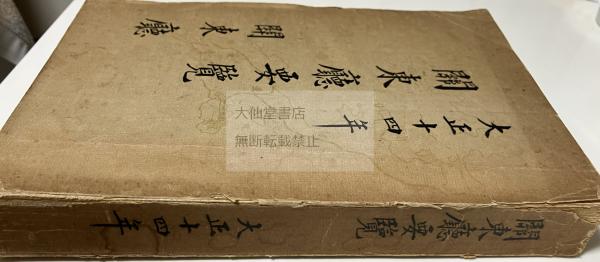 關東廳
關東廳要覽
大正十四年
大仙堂書店
無断転載禁止
關東廳要覽
大正十四年